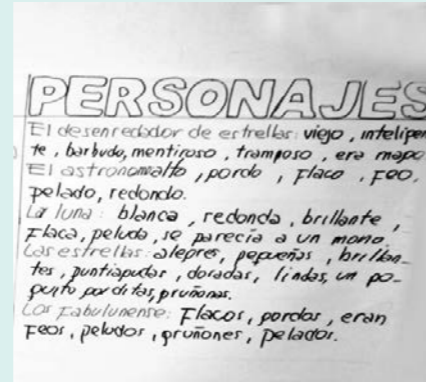 PERSONAJES
El desenredador de estrellas: viejo, intelipen-
te, barbudo, mentiroso, tramposo, era mapo
El astronomalto, pordo, flaco, feo,
pelado, redondo.
La luna: blanca, redonda, brillante,
flaca, peluda, se parecía a un mono.
Las estrellas: alepres, pepueñas, brillan-
tes, puntiapudas, doradas, lindas, un po-
puito porditas, pruñonas.
Los Fabulunense: Flacos, pordos, eran
Feos, peludos, pruñones, pelados.